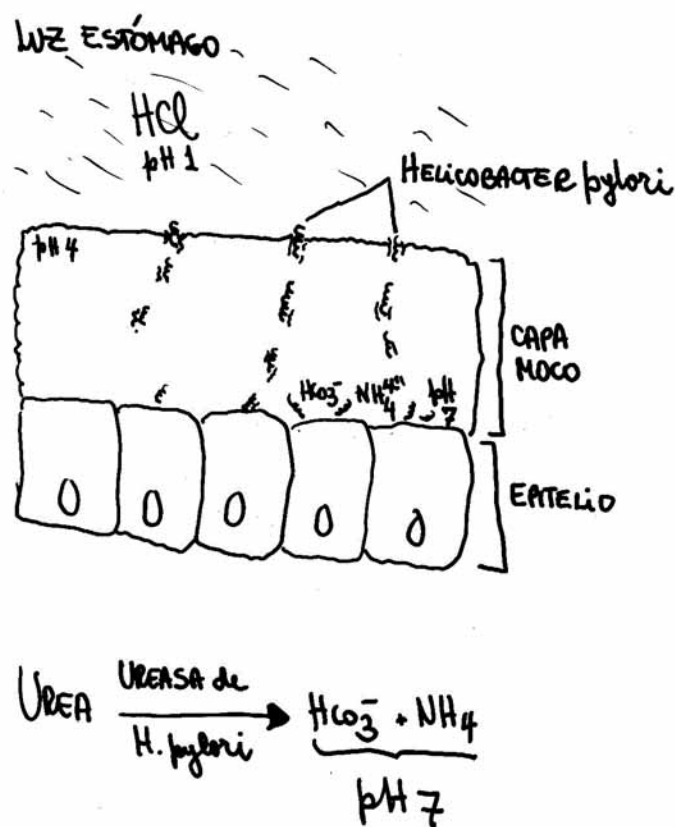 LUZ ESTÓMAGO
HCl
pH 1
HELICOBACTER pylori
pH 4
CAPA
MOCO
HCO3⁻ NH4 pH
7
EPITELIO
UREA UREASA de
H. pylori
HCO3⁻ + NH4
pH 7